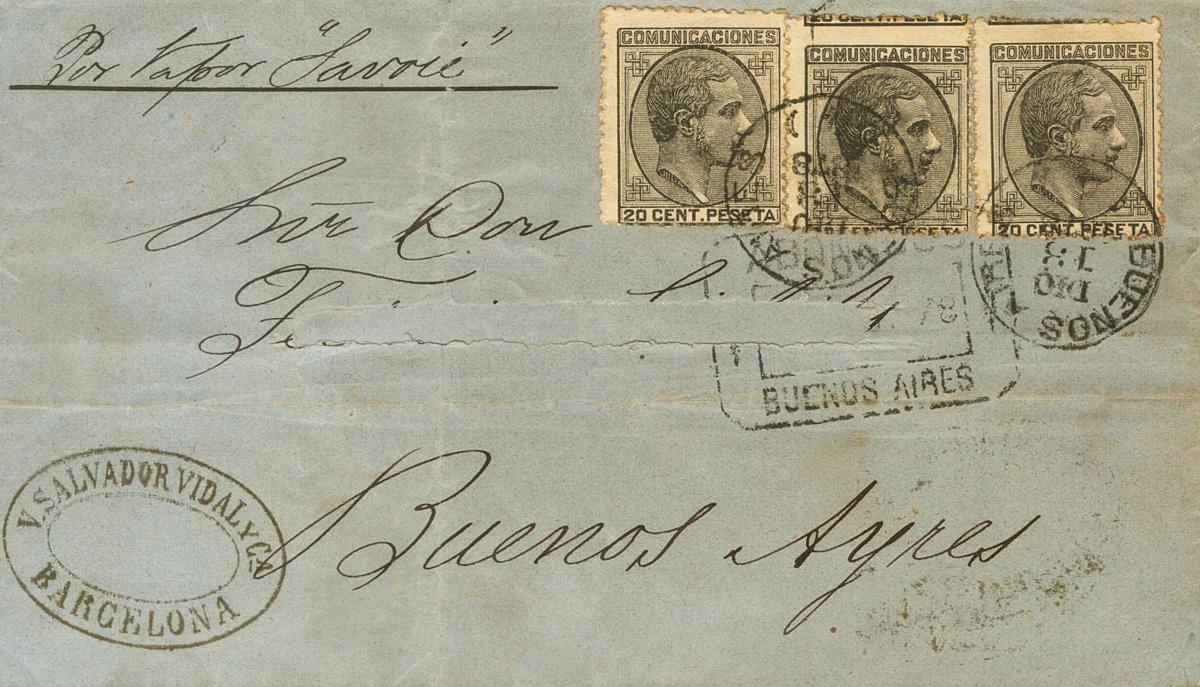 Por Vapor "Savoie"
20 CENT. PESETA
COMUNICACIONES
COMUNICACIONES
COMUNICACIONES
20 CENT. PESETA
20 CENT. PESETA
Señor Don
BUENOS
DIC
13
BUENOS AIRES
Buenos Ayres
V. SALVADOR VIDAL Y Cª
BARCELONA